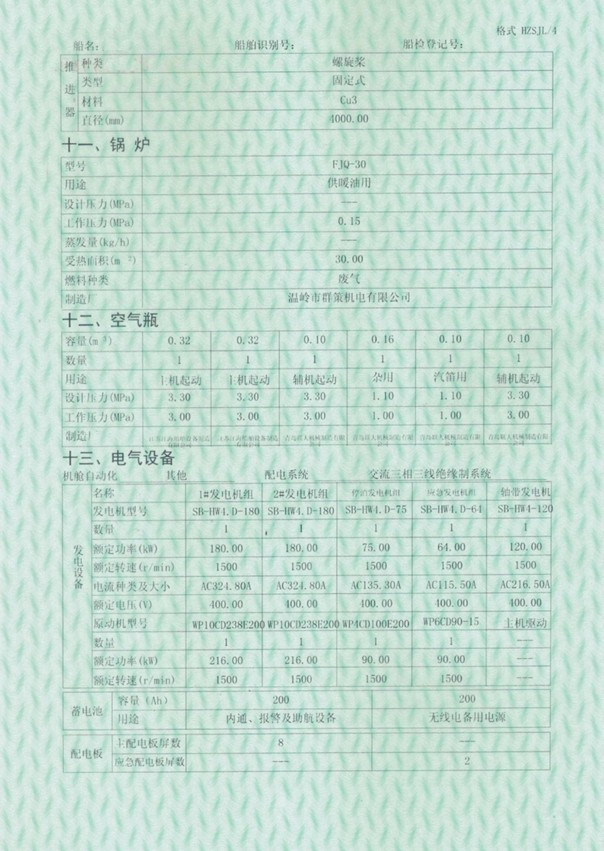 格式 HZSJL/4
船名: 船舶识别号: 船检登记号:
推进器 种类 螺旋桨
类型 固定式
材料 Cu3
直径(mm) 4000.00
十一、锅 炉
型号 FJQ-30
用途 供暖油用
设计压力(MPa) ---
工作压力(MPa) 0.15
蒸发量(kg/h) ---
受热面积(m ²) 30.00
燃料种类 废气
制造厂 温岭市群策机电有限公司
十二、空气瓶
容量(m ³) 0.32 0.32 0.10 0.16 0.10 0.10
数量 1 1 1 1 1 1
用途 主机起动 主机起动 辅机起动 杂用 汽笛用 辅机起动
设计压力(MPa) 3.30 3.30 3.30 1.10 1.10 3.30
工作压力(MPa) 3.00 3.00 3.00 1.00 1.00 3.00
制造厂
十三、电气设备
机舱自动化 其他 配电系统 交流三相三线绝缘制系统
发电设备 名称 1#发电机组 2#发电机组 停泊发电机组 应急发电机组 轴带发电机
发电机型号 SB-HW4.D-180 SB-HW4.D-180 SB-HW4.D-75 SB-HW4.D-64 SB-HW4-120
数量 1 1 1 1 1
额定功率(kW) 180.00 180.00 75.00 64.00 120.00
额定转速(r/min) 1500 1500 1500 1500 1500
电流种类及大小 AC324.80A AC324.80A AC135.30A AC115.50A AC216.50A
额定电压(V) 400.00 400.00 400.00 400.00 400.00
原动机型号 WP10CD238E200 WP10CD238E200 WP4CD100E200 WP6CD90-15 主机驱动
数量 1 1 1 1 ---
额定功率(kW) 216.00 216.00 90.00 90.00 ---
额定转速(r/min) 1500 1500 1500 1500 ---
蓄电池 容量 (Ah) 200 200
用途 内通、报警及助航设备 无线电备用电源
配电板 主配电板屏数 8 ---
应急配电板屏数 --- 2